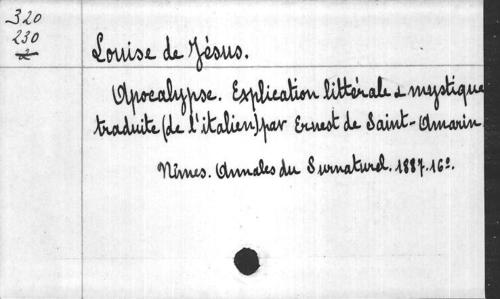 320
230
2
Louise de Jésus.
Apocalypse. Explication littérale & mystique
traduite (de l'italien) par Ernest de Saint-Amarin
Nîmes. Annales du Surnaturel. 1887. 16º.